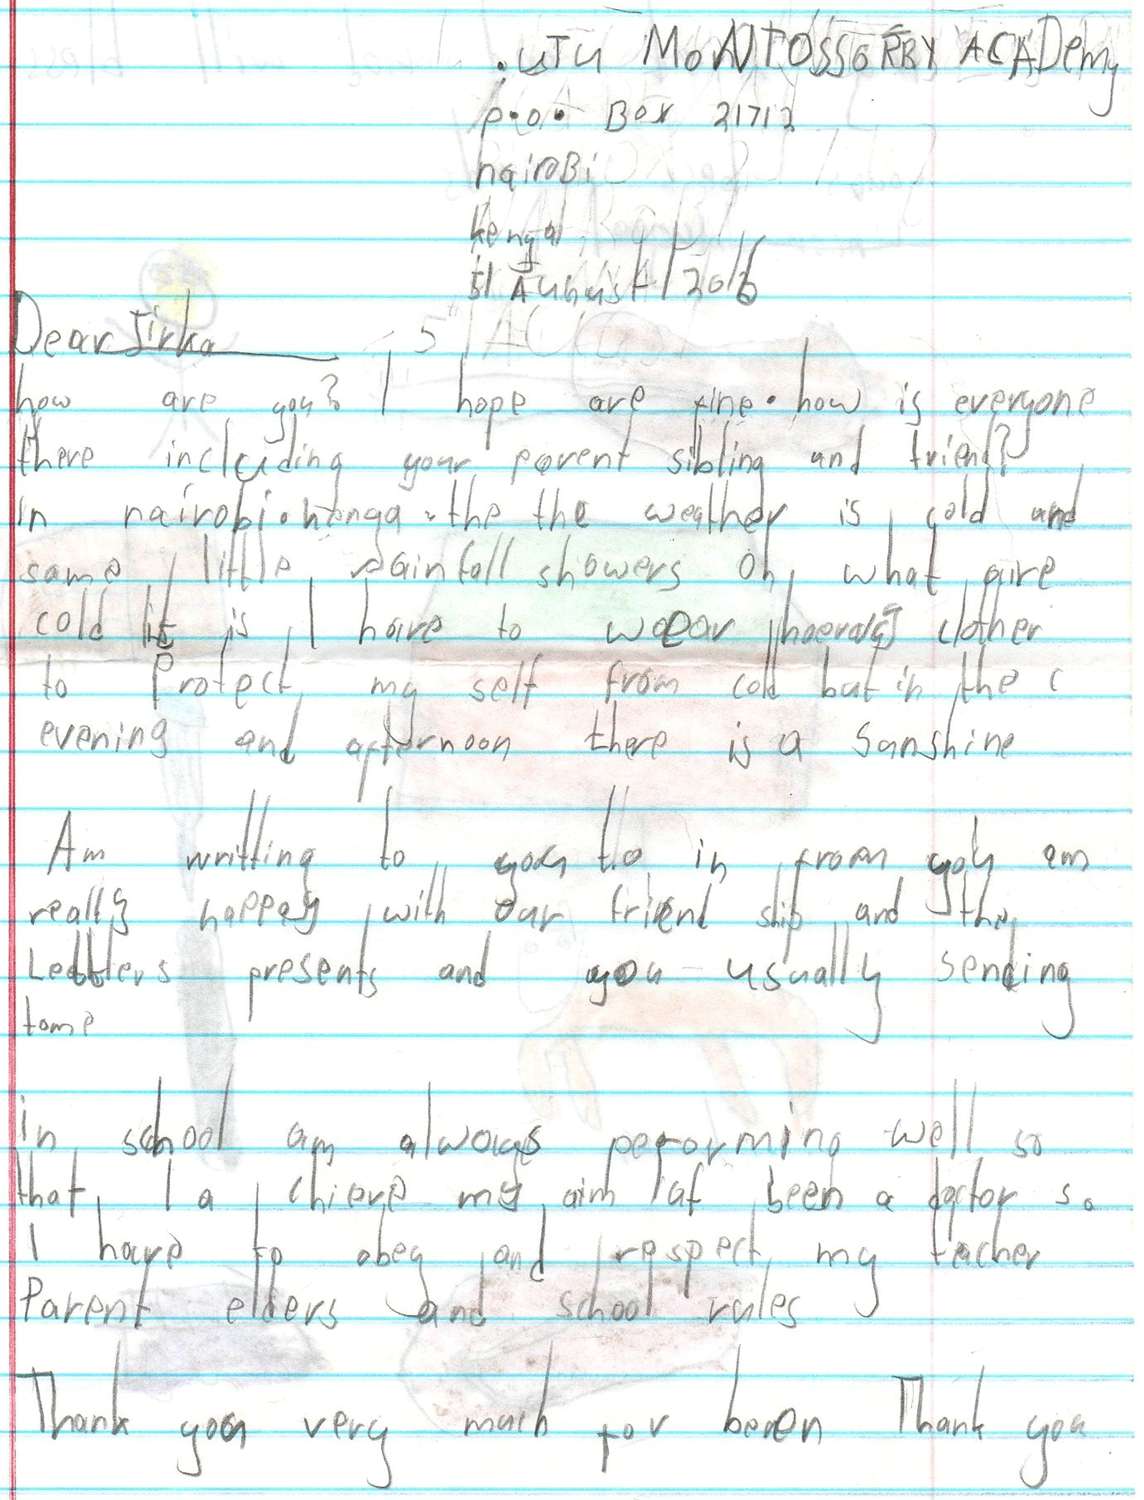 .UTU MONTOSSORBY ACADEMY
p.o. Box 21712
naiROBi
kenya
51 August / 2016
Dear Jirka
how are you? I hope are fine. how is everyone
there including your parent sibling and friend?
in nairobi. kenya. the the weather is cold and
same little rainfall showers Oh, what aire
cold it is I have to wear clother
to Protect my self from cold but in the c
evening and afternoon there is a Sanshine
Am writting to you to in from you am
really happey with our friend ship and the
Leatters presents and you usually sending
tome
in school am always perorming well so
that I a chieve my aim af been a doctor so
I have to obey and respect my teacher
Parent elders and school rules
Thank you very much for been Thank you